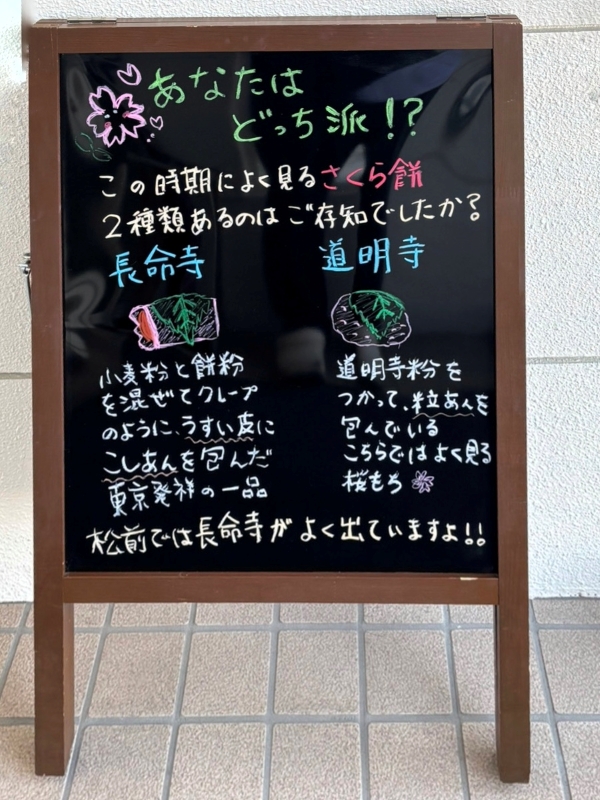 あなたは
どっち派！？
この時期によく見るさくら餅
２種類あるのはご存知でしたか？
長命寺
小麦粉と餅粉
を混ぜてクレープ
のように、うすい皮に
こしあんを包んだ
東京発祥の一品
道明寺
道明寺粉を
つかって、粒あんを
包んでいる
こちらではよく見る
桜もち
松前では長命寺がよく出ていますよ！！